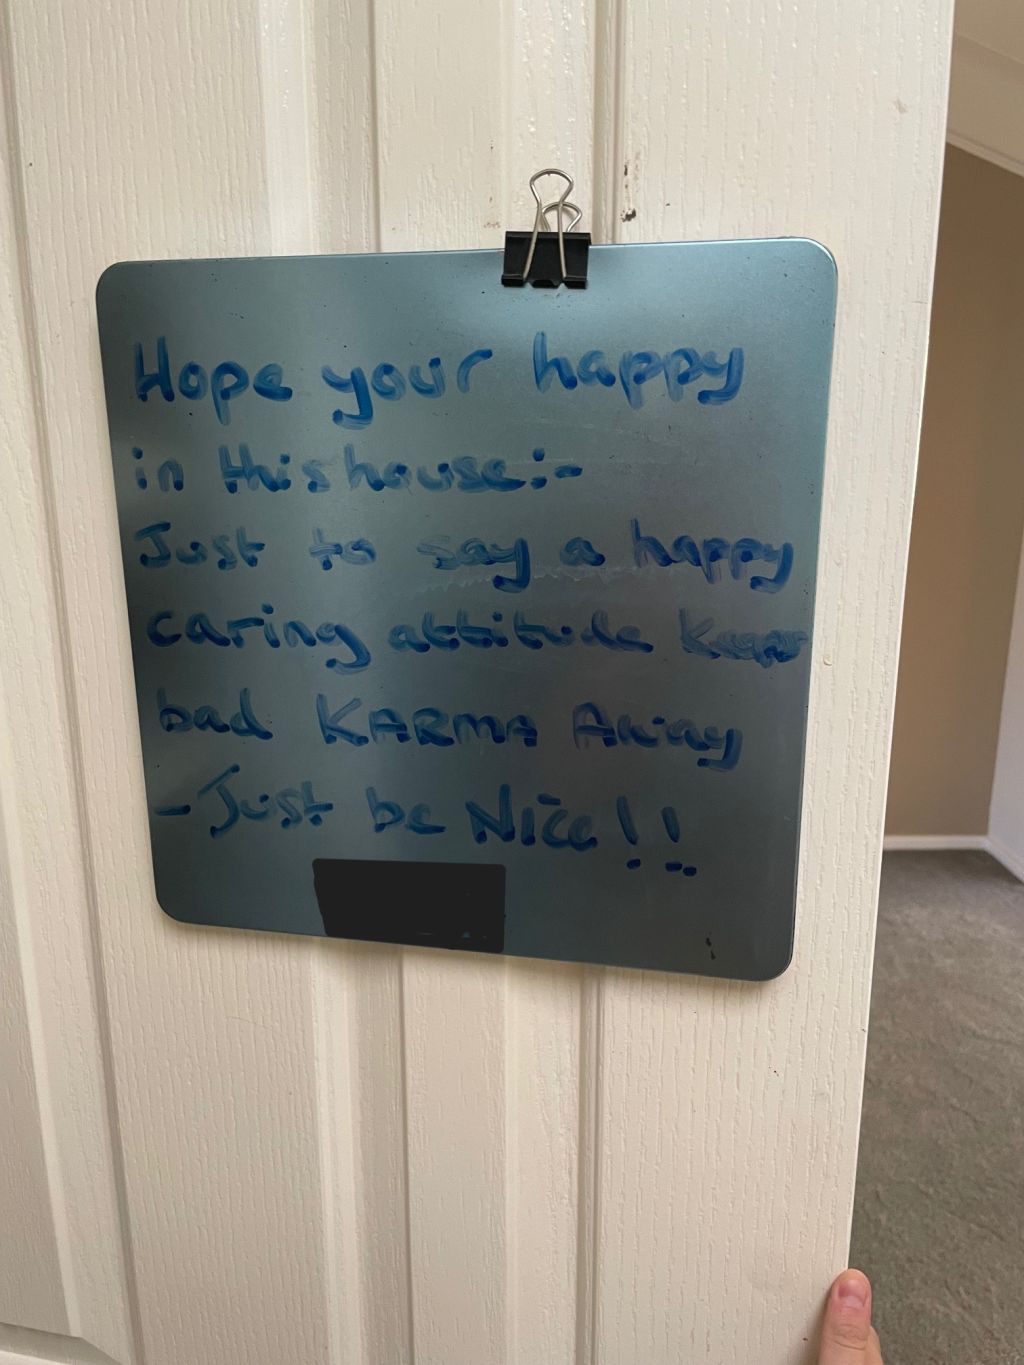 Hope your happy
in this house:-
Just to say a happy
caring attitude Keeps
bad KARMA Away
- Just be Nice!!